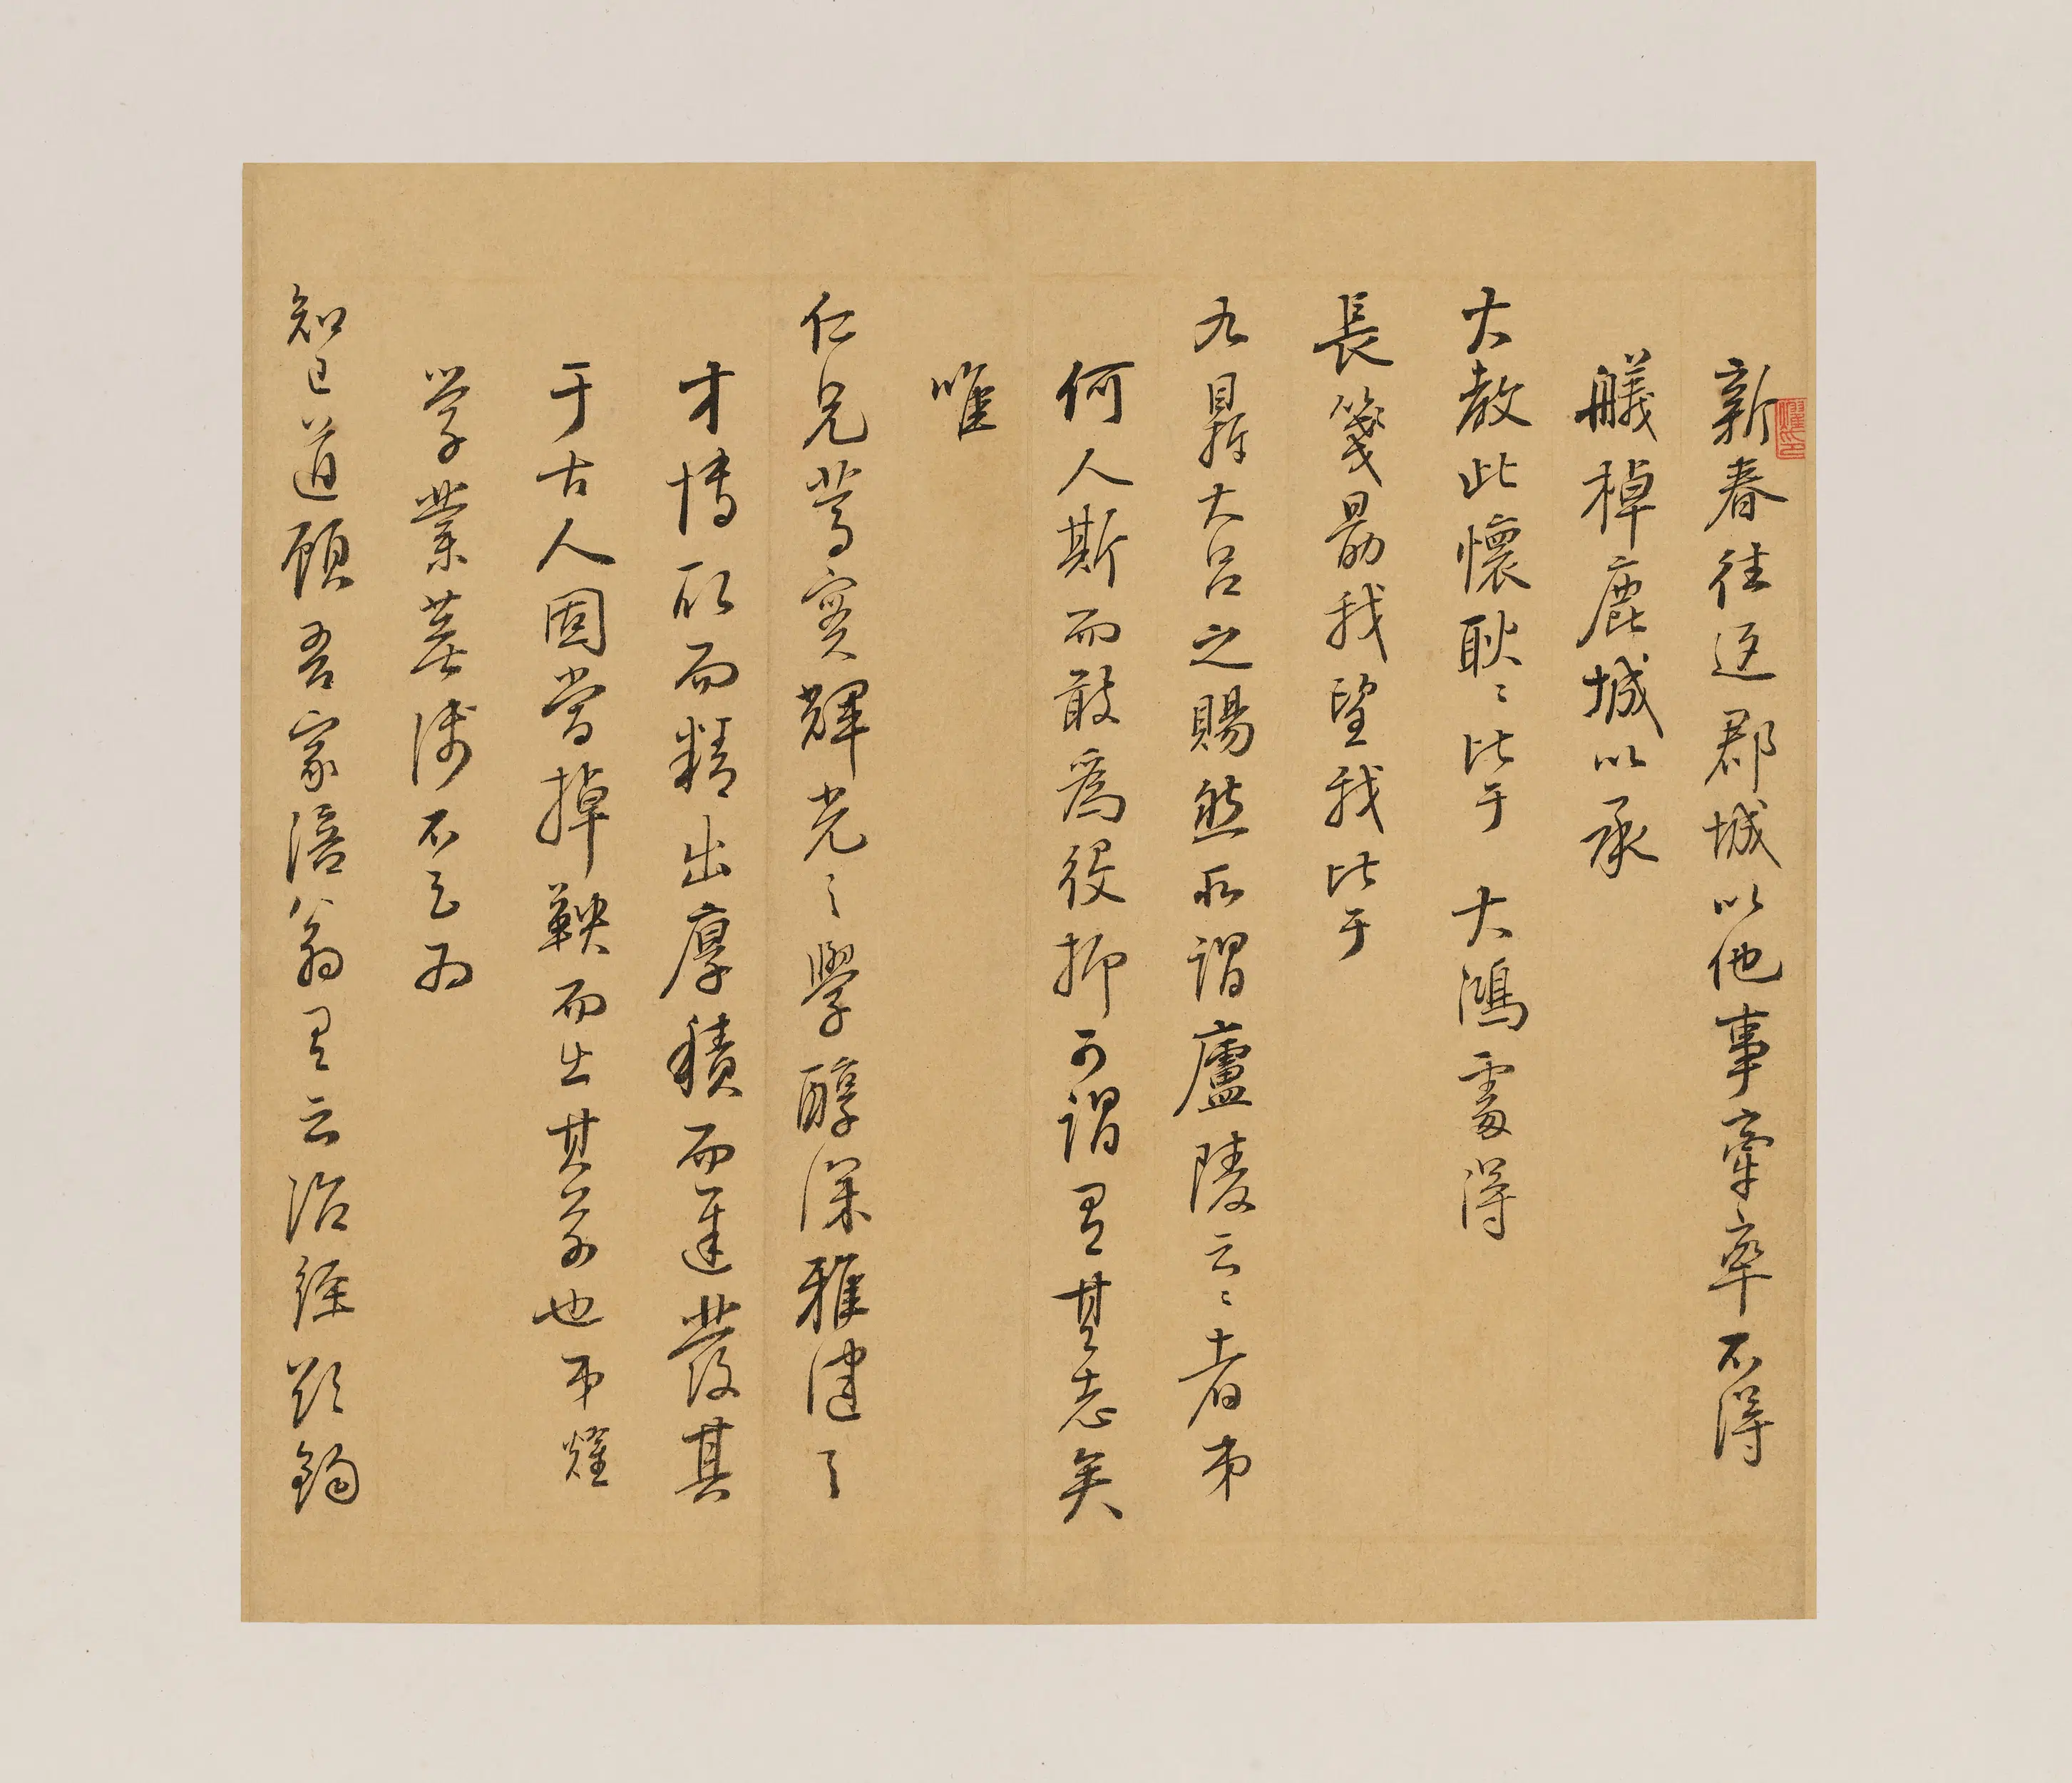 新春往返郡城以他事牽率不得
艤棹鹿城以承
大教此懷耿〻比于 大鴻處得
長箋勗我望我比于
九鼎大呂之賜然所謂廬陵云〻者弟
何人斯而敢爲役抑可謂有其志矣
唯
仁兄篤實輝光〻學醇深雅健〻
才博取而精出厚積而遲發其
于古人固嘗掉鞅而出其前也弟燿
学業蕪淺不足为
知己道顧吾家涪翁有云治經欲鉤